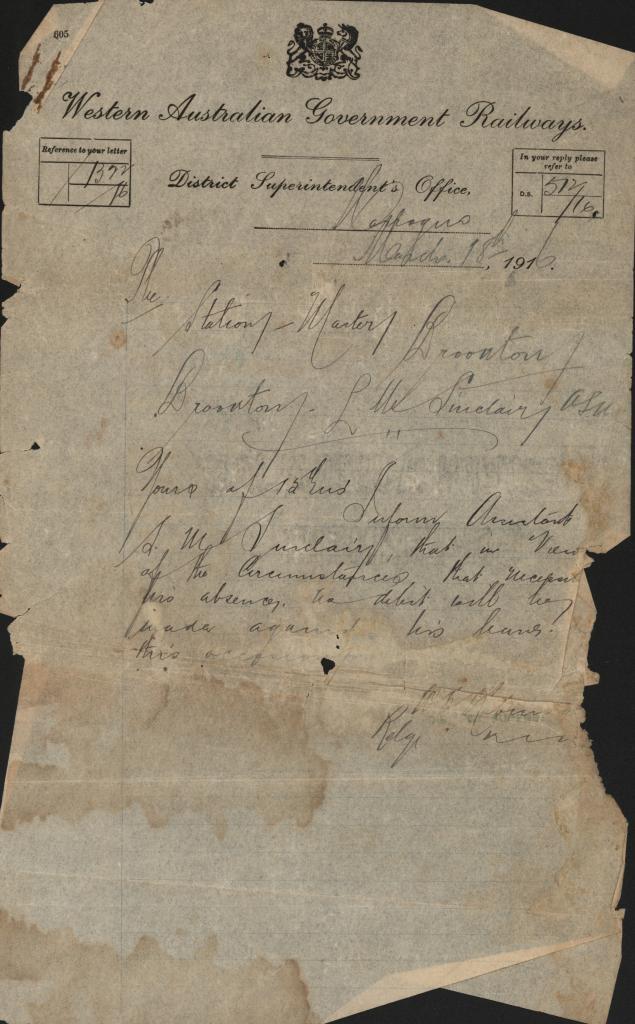 605
Western Australian Government Railways.
Reference to your letter
1372/16
District Superintendent's Office,
In your reply please refer to
D.S. 512/16.
March 18th, 1916.
The
Station Master
L Mc Sinclair ASM
Yours of 15th inst
Inform Assistant
L. Mc Sinclair, that in View
of the Circumstances that
his absence, no debit will be
made against his leave.
this